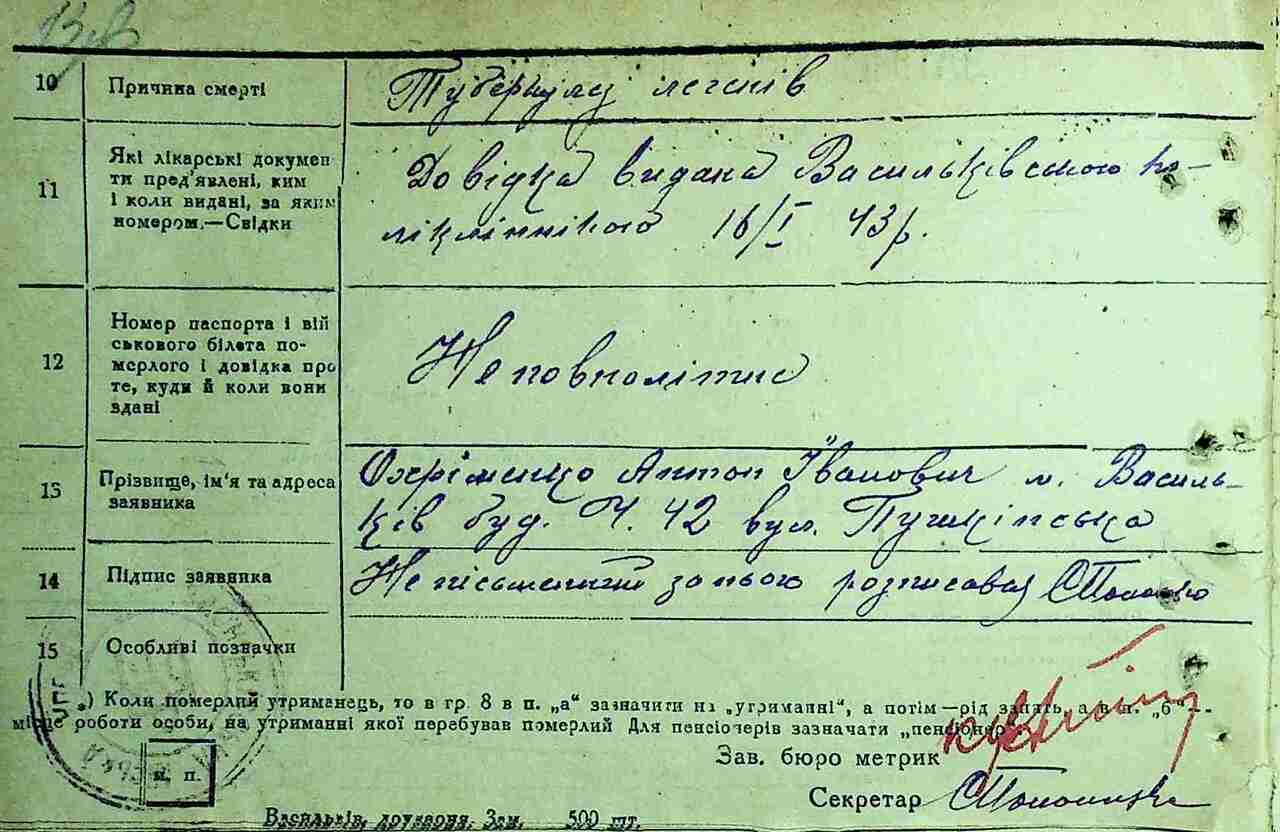 10 Причина смерті Туберкульоз легенів
11 Які лікарські докумен
ти пред'явлені, ким
і коли видані, за яким
номером.—Свідки
Довідка видана Васильківською по-
ліклінікою 16/I 43р.
12 Номер паспорта і вій
ськового білета по-
мерлого і довідка про
те, куди й коли вони
здані
Неповнолітнє
13 Прізвище, ім'я та адреса
заявника
Охріменко Антон Іванович м. Василь-
ків буд. Ч. 42 вул. Пушкінська
14 Підпис заявника Неписьменний за нього розписався
15 Особливі позначки
*) Коли померлий утриманець, то в гр. 8 в п. „а" зазначити на „утриманні", а потім—рід занять, а в п. „б"—
місце роботи особи, на утриманні якої перебував померлий Для пенсіонерів зазначати „пенсіонер"
Зав. бюро метрик
м. п.
Секретар
Васильків, друкарня. Зам. 500 шт.